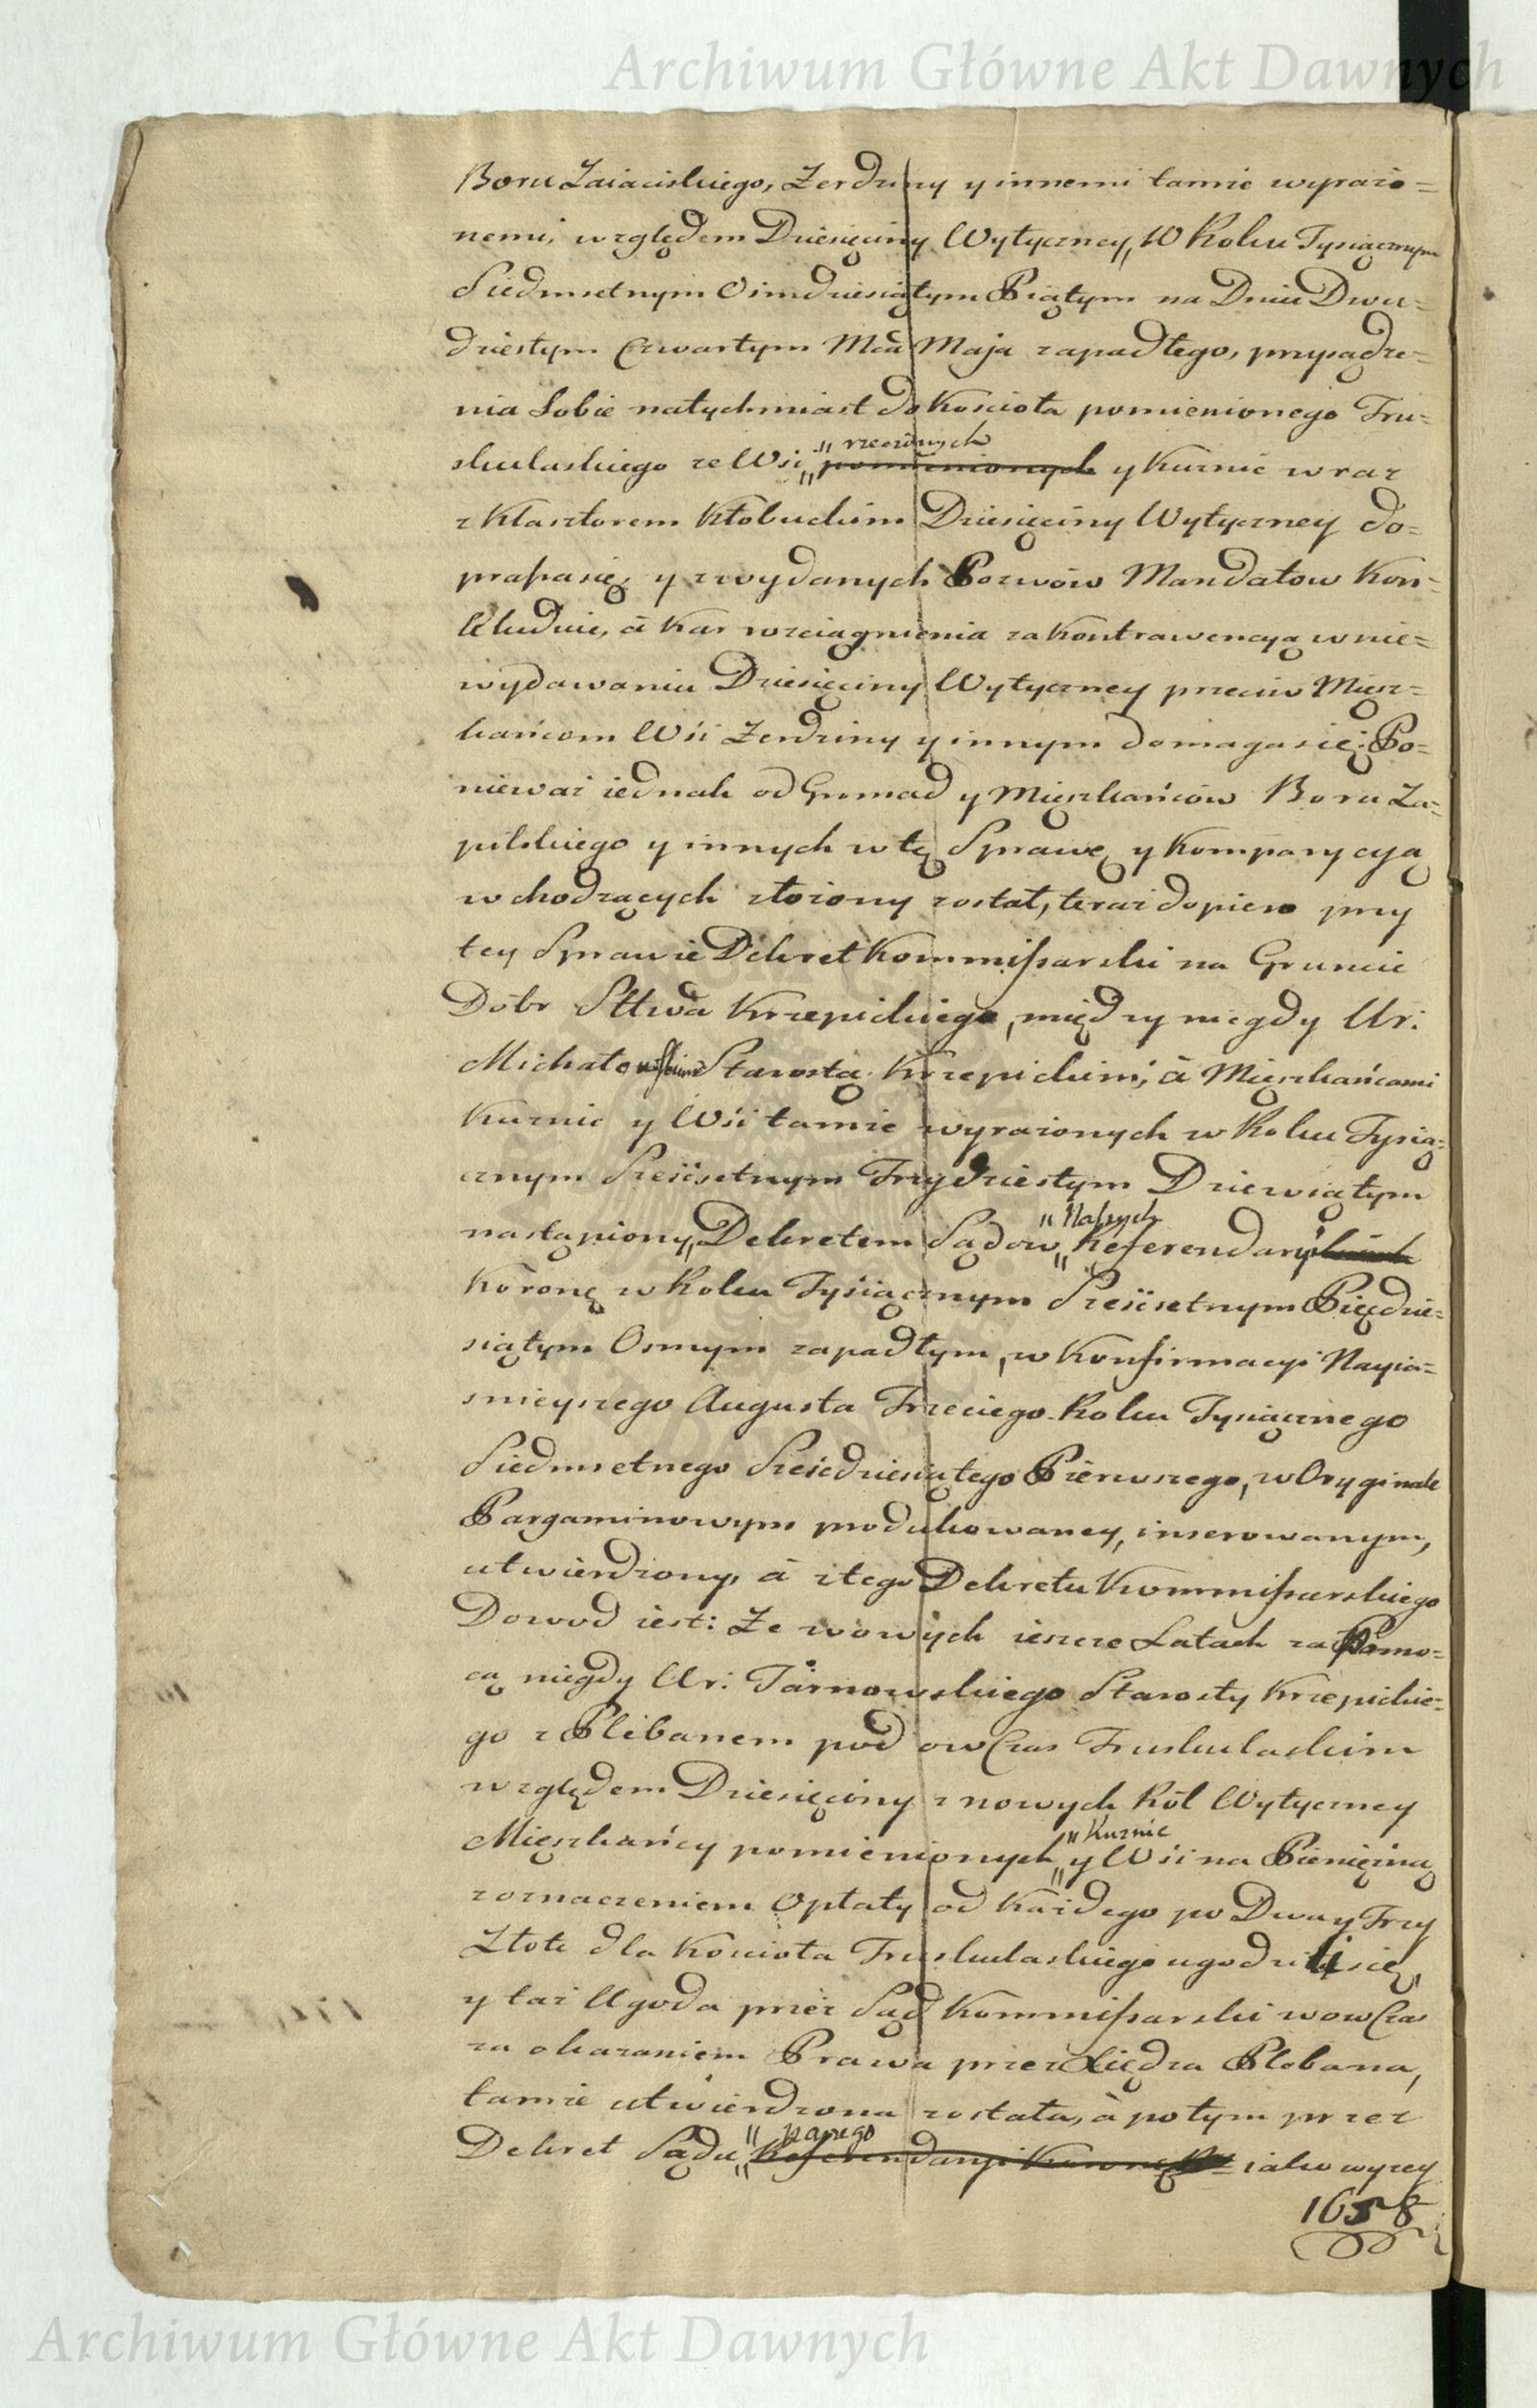 Archiwum Główne Akt Dawnych
Boru Zaiacskiego, Zerdziny y innemi tamże wyrażo=
nemi, względem Dziesięciny Wytyczney, W Roku Tysiącznym
Siedmsetnym Osmdziesiątym Piątym na Dniu Dwu=
dziestym Czwartym Mca Maja zapadłego, przysądze=
nia Sobie natychmiast do Kościoła pomienionego Tru=
skulaskiego ze Wsi " rzeczonych pomienionych y Kuznic wraz
z Klasztorem Kłobuckim Dziesięciny Wytyczney do=
praszasię, y z wydanych Pozwów Mandatow Kon=
kluduie, á Kar rozciągnienia za Kontrawencyą w nie=
wydawaniu Dziesięciny Wytyczney przeciw Miesz=
kańcom Wsi Zerdziny y innym domagasię: Po=
nieważ iednak od Gromad y Mięszkańców Boru Za=
pilskiego y innych w tę Sprawę y Komparycyą
wchodzących złożony został, teraz dopiero przy
tey Sprawie Dekret Kommissarski na Gruncie
Dóbr Sttwa Krzepickiego, między niegdy Ur:
Michałowskim Starostą Krzepickim, á Mięszkańcami
Kuznic y Wsi tamże wyrażonych w Roku Tysią=
cznym Sześćsetnym Trzydziestym Dziewiątym
nastąpiony, Dekretem Sądow " Naszych Referendaryi
Koronę w Roku Tysiącznym Sześćsetnym Pięćdzie=
siątym Osmym zapadłym, w Konfirmacyi Nayia=
snieyszego Augusta Trzeciego Roku Tysiącznego
Siedmsetnego Sześćdziesiątego Pierwszego, w Oryginale
Pargaminowym produkowaney, inserowanym,
utwierdzony, á z tego Dekretu Kommissarskiego
Dowod iest: Ze w owych ieszcze Latach za Pomo=
cą niegdy Ur: Tarnowskiego Starosty Krzepickie=
go z Plibanem pod ow Czas Truskulaskim
względem Dziesięciny z nowych Ról Wytyczney
Mięszkańcy pomienionych " Kuznic y Wsi na Pieniężną
z oznaczeniem Opłaty od każdego po Dwa y Trzy
Złote dla Kościoła Truskulaskiego ugodzili się,
y taż Ugoda przez Sąd Kommissarski wow Czas
za okazaniem Prawa przez Xiędza Plebana,
tamże utwierdzona została, á potym przez
Dekret Sądu " Referendaryi iako wyzey
1658
Archiwum Główne Akt Dawnych